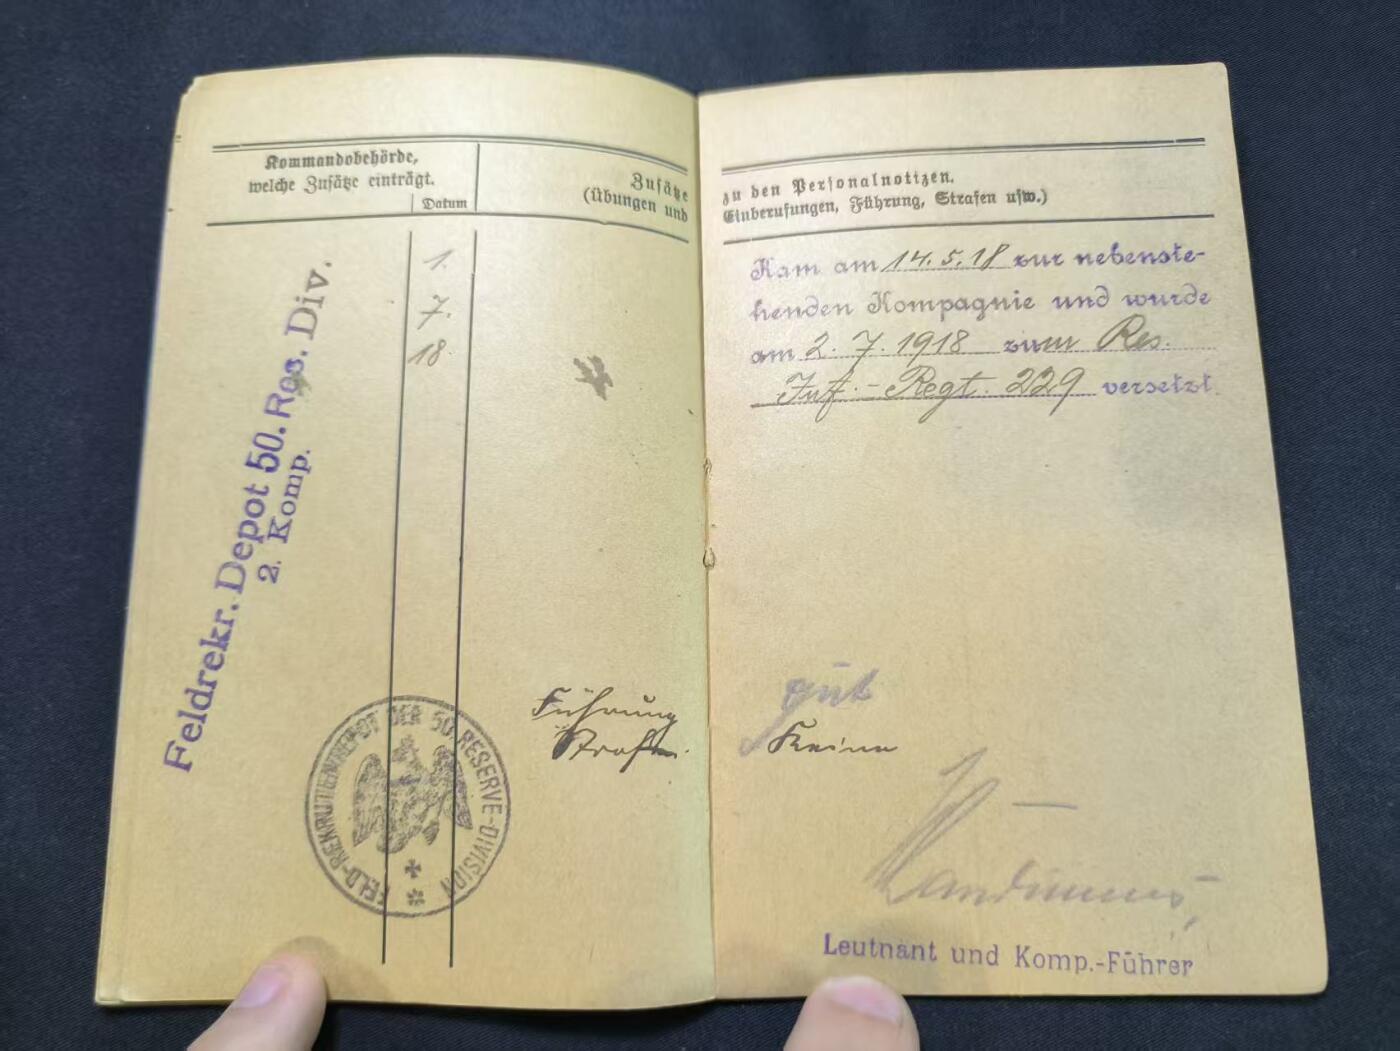 Kommandobehörde,
welche Zusätze einträgt.
Datum
Zusätze
(Übungen und
Feldrekr. Depot 50. Res. Div.
2. Komp.
1.
7.
18.
FELD-REKRUTENDEPOT DER 50. RESERVE-DIVISION
Führung
Strafen.
zu den Personalnotizen.
Einberufungen, Führung, Strafen usw.)
Kam am 14.5.18 zur nebenste-
henden Kompagnie und wurde
am 2.7.1918 zum Res.
Inf.-Regt. 229 versetzt
gut
Keine
Leutnant und Komp.-Führer